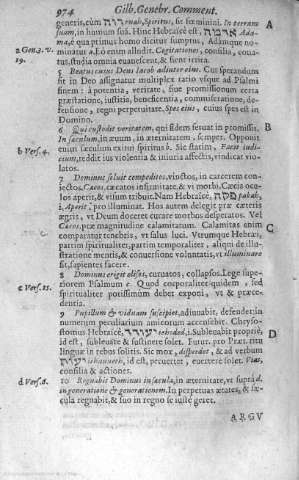 974 Gilb. Genebr. Comment.
generis, cùm רוח ruah, Spiritus, sit fœminini. In terram A
suam, in humum sos. Hinc Hebraicè est, אדמה Ada-
ma, è qua primus homo dictus sumptus, Adamque no-
2 Gen. 3. v. minatus à Eò enim alludit. Cogitationes, consilia, cona-
19. tus, studia omnia euanescent, & sient irrita.
5 Beatus cuius Deus Iacob adiutor eius. Cur sperandum
sit in Deo assignatur multiplex ratio vsque ad Psalmi
finem: à potentia, veritate, siue promissionum certa
præstatione, iustitia, beneficentia, commiseratione, de-
fensione, regni perpetuitate. Spes eius, cuius spes est in
Domino.
6 Qui custodit veritatem, qui fidem seruat in promissis. B
In sæculum, in æuum, in æternitatem, semper. Opponit
b Vers. 4. enim sæculum exitui spiritus b. Sic statim, Facit iudi-
cium, reddit ius violentia & iniuria affectis, vindicat vio-
latos.
7 Dominus soluit compeditos, vinctos, in carcerem con-
iectos. Cæcos, cæcatos infirmitate, & vi morbi. Cæcis ocu-
los aperit, & visum tribuit. Nam Hebraicè, פקח pakah,
i. Aperit, pro illuminat. Hos autem delegit præ cæteris
ægris, vt Deum doceret curare morbos desperatos. Vel
Cæcos, præ magnitudine calamitatum. Calamitas enim C
comparatur tenebris, vt salus luci. Vtrumque Hebræi,
partim spiritualiter, partim temporaliter, aliqui de illu-
stratione mentis, & conuersione voluntatis, vt illuminare
sit, sapientes facere.
8 Dominus erigit elisos, curuatos, collapsos. Lege supe-
c Vers. 15. riorem Psalmum c. Quod corporaliter quidem, sed
spiritualiter potissimum debet exponi, vt & præce-
dentia.
9 Pupillum & viduam suscipiet, adiuuabit, defendet, in
numerum peculiarium amicorum accensibit. Chryso-
stomus Hebraicè, יעודד ieòded, i. Subleuabit propriè, D
id est, subleuate & sustinere solet. Futur. pro Præt. ritu
linguæ in rebus solitis. Sic mox, disperdet, & ad verbum
יעות iehauueth, id est, peruertet, euertere solet. Vias,
consilia & actiones.
d Vers. 8. 10 Regnabit Dominus in sæcula, in æternitate, vt suprà d.
in generatione & generationem. In perpetuas ætates, & sæ-
cula regnabit, & suo in regno se iustè geret.
ARGV